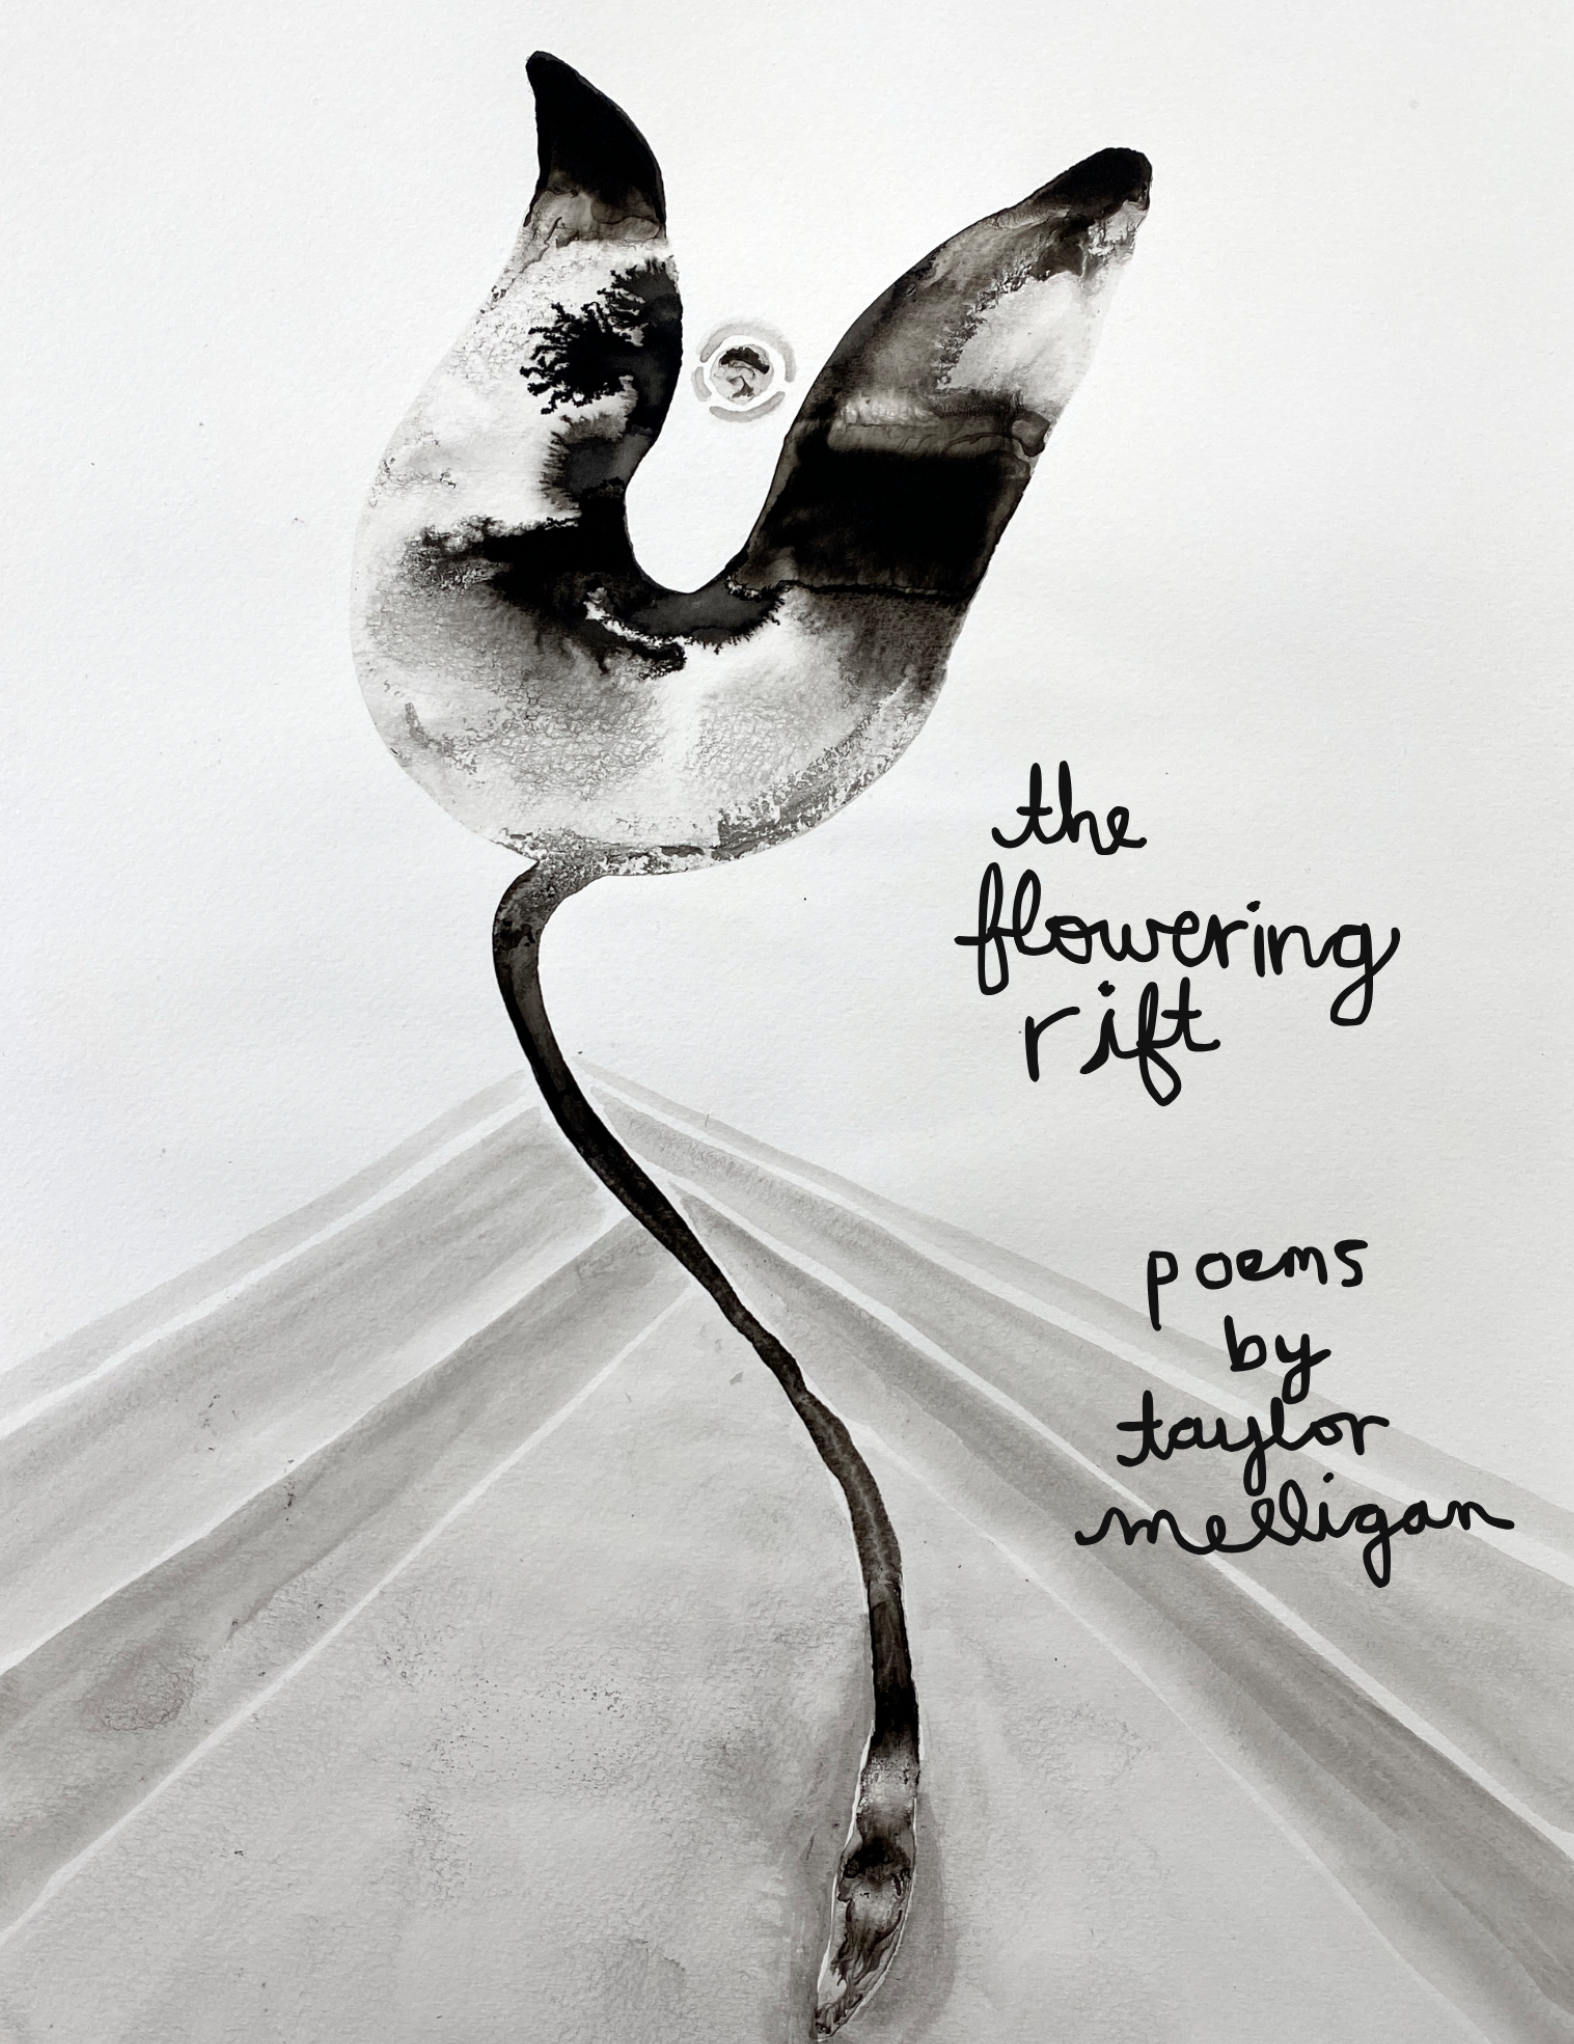 the
flowering
rift
poems
by
taylor
melligan